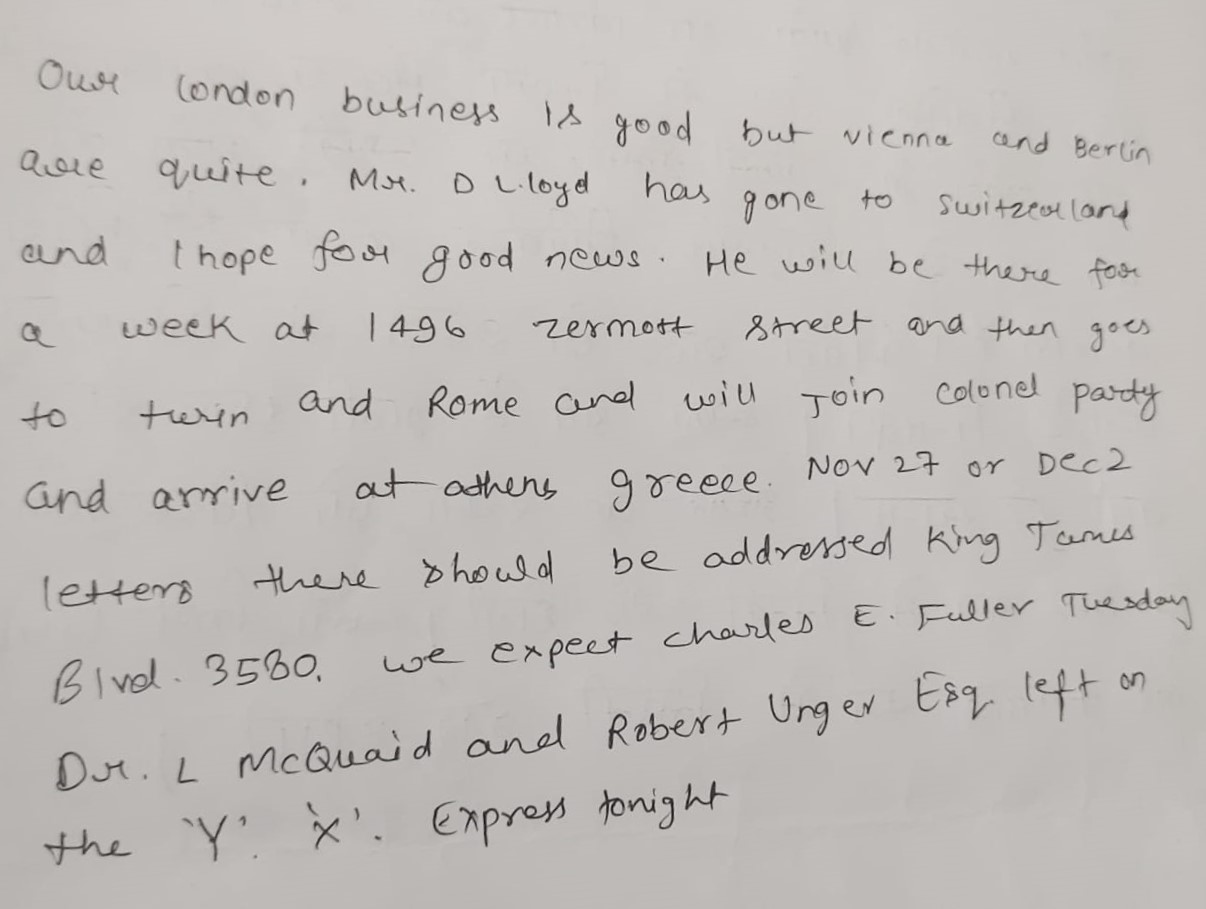 Our London business is good but vienna and Berlin
are quite. Mr. D L.loyd has gone to switzerland
and I hope for good news. He will be there for
a week at 1496 zermott street and then goes
to turin and Rome and will Join colonel party
and arrive at athens greece. Nov 27 or Dec 2
letters there should be addressed King James
Blvd. 3580. we expect charles E. Fuller Tuesday
Dr. L McQuaid and Robert Unger Esq. left on
the 'Y'. 'X'. Express tonight